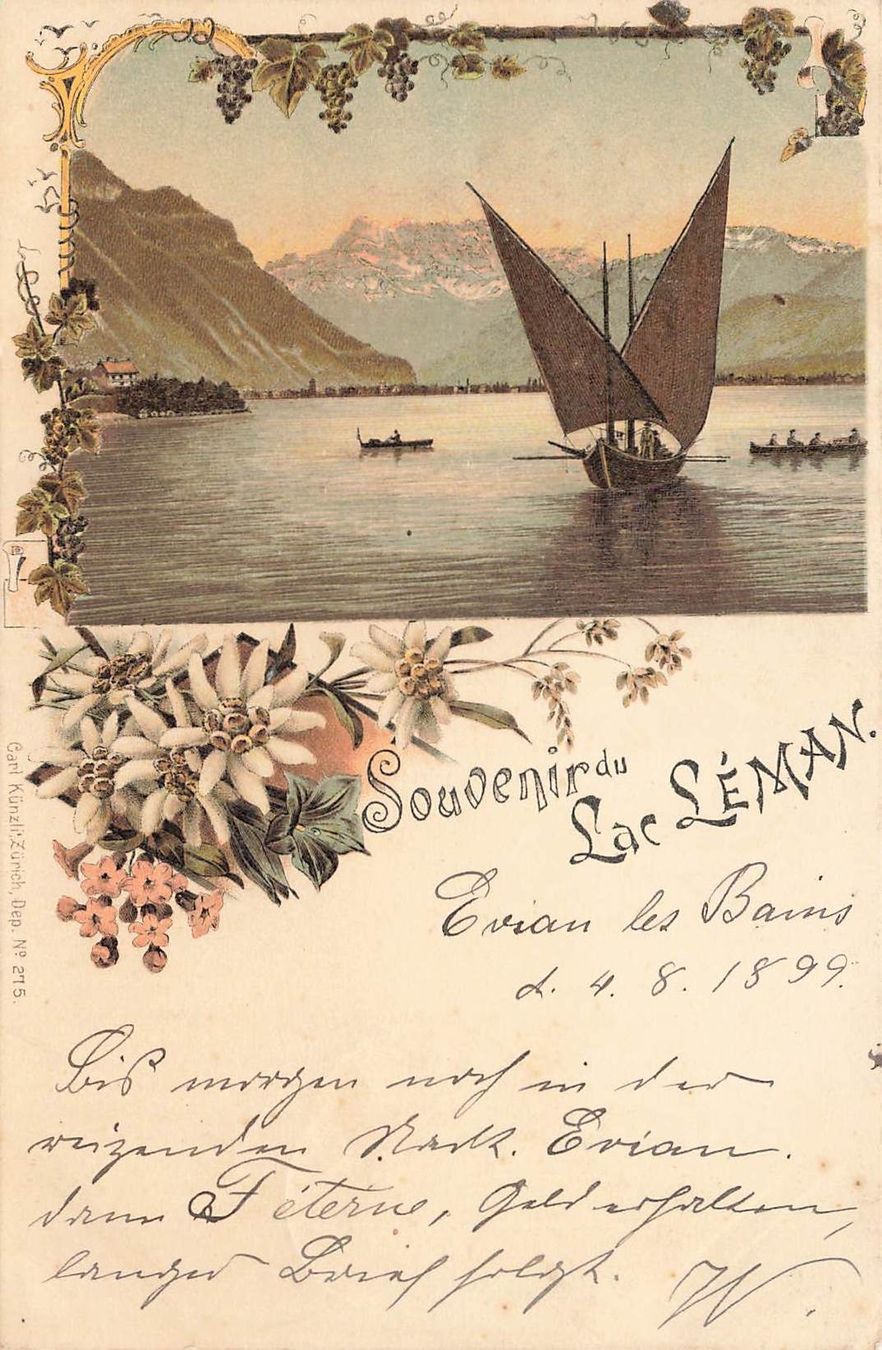 Souvenir du
Lac LÉMAN.
Carl Künzli, Zürich, Dep. Nº 275.
Evian les Bains
d. 4. 8. 1899.
Bis morgen noch in der
reizenden Stadt. Evian.
dann Féterne, Geld erhalten,
langer Brief folgt. W.